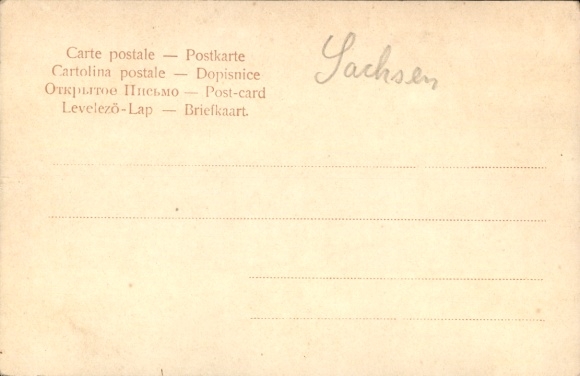 Carte postale — Postkarte
Cartolina postale — Dopisnice
Открытое Письмо — Post-card
Levelező-Lap — Briefkaart.
Sachsen